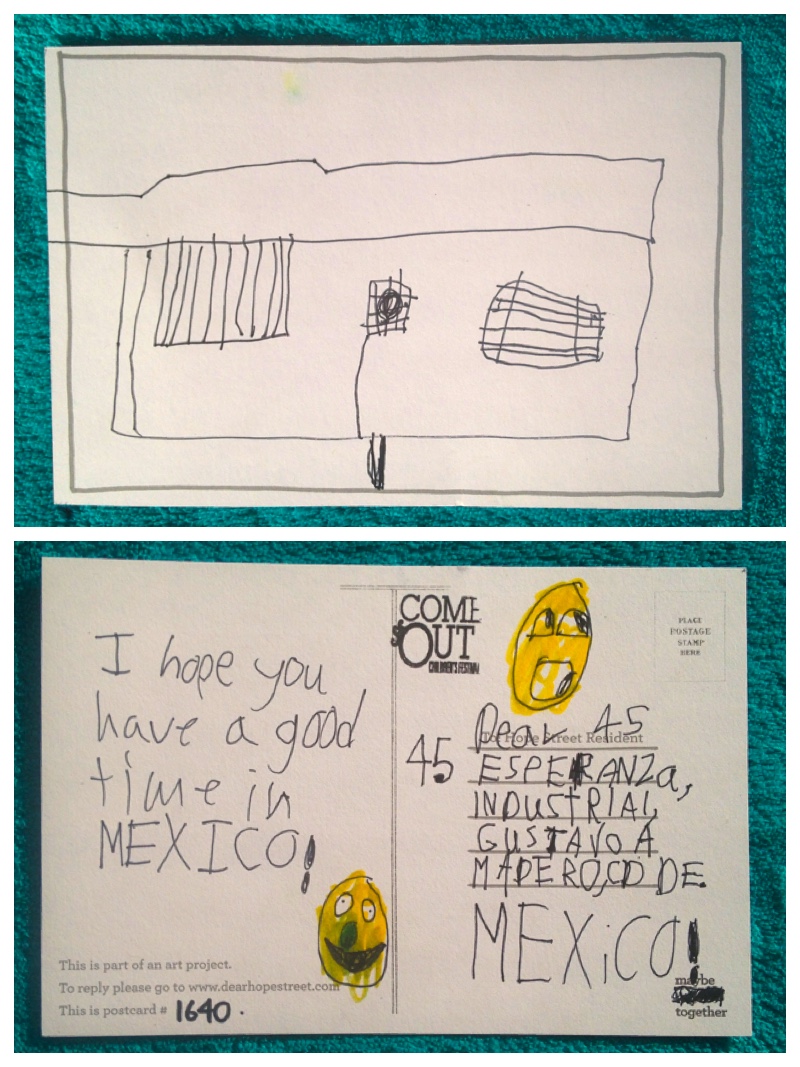 I hope you
have a good
time in
MEXICO!
This is part of an art project.
To reply please go to www.dearhopestreet.com
This is postcard # 1640.
COME
OUT
CHILDREN'S FESTIVAL
PLACE
POSTAGE
STAMP
HERE
To: Hope Street Resident
Dear 45
45 ESPERANZa,
INDUStRIAL
GUSTAVO A
MADERO,CD DE
MEXiCO!
maybe
together